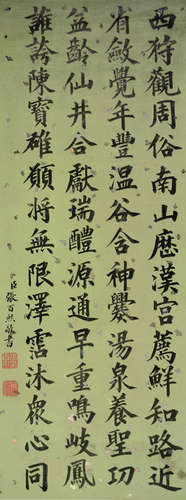 西狩觀周俗南山歷漢宮薦鮮知路近
省斂覺年豐溫谷含神爨湯泉養聖功
益齡仙井合獻瑞醴源通早重鳴岐鳳
誰誇陳寶雄願將無限澤霑沐眾心同
臣張百熙敬書